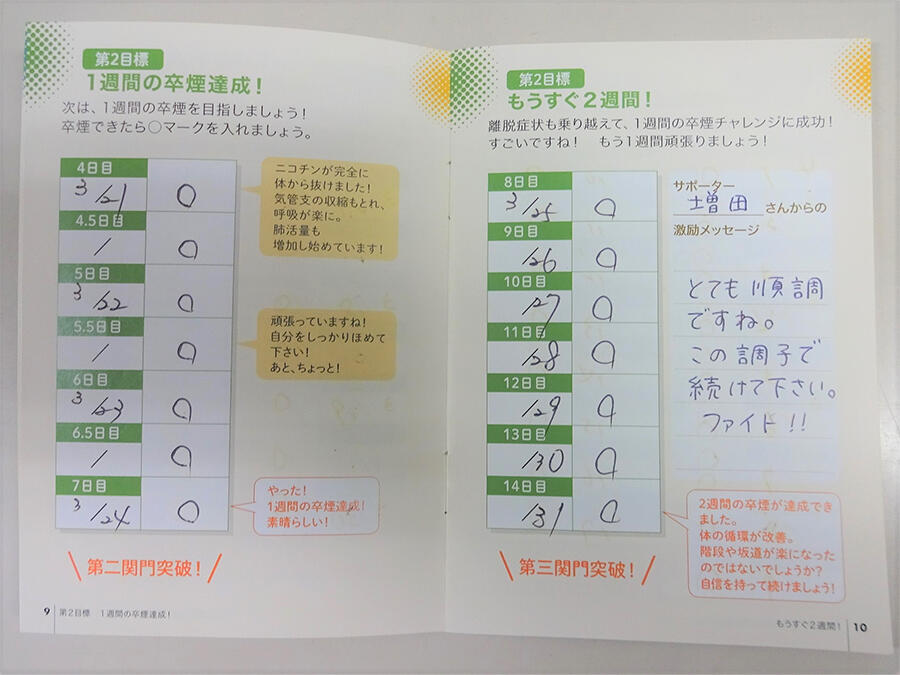 第2目標
1週間の卒煙達成!
次は、1週間の卒煙を目指しましょう!
卒煙できたら○マークを入れましょう。
4日目
3/21 ○
4.5日目
/ ○
5日目
3/22 ○
5.5日目
/ ○
6日目
3/23 ○
6.5日目
/ ○
7日目
3/24 ○
ニコチンが完全に
体から抜けました!
気管支の収縮もとれ、
呼吸が楽に。
肺活量も
増加し始めています!
頑張っていますね!
自分をしっかりほめて
下さい!
あと、ちょっと!
やった!
1週間の卒煙達成!
素晴らしい!
第二関門突破!
9 第2目標 1週間の卒煙達成!
第2目標
もうすぐ2週間!
離脱症状も乗り越えて、1週間の卒煙チャレンジに成功!
すごいですね! もう1週間頑張りましょう!
8日目
3/25 ○
9日目
/26 ○
10日目
/27 ○
11日目
/28 ○
12日目
/29 ○
13日目
/30 ○
14日目
/31 ○
サポーター
増田 さんからの
激励メッセージ
とても順調
ですね。
この調子で
続けて下さい。
ファイト!!
2週間の卒煙が達成でき
ました。
体の循環が改善。
階段や坂道が楽になった
のではないでしょうか?
自信を持って続けましょう!
第三関門突破!
もうすぐ2週間! 10